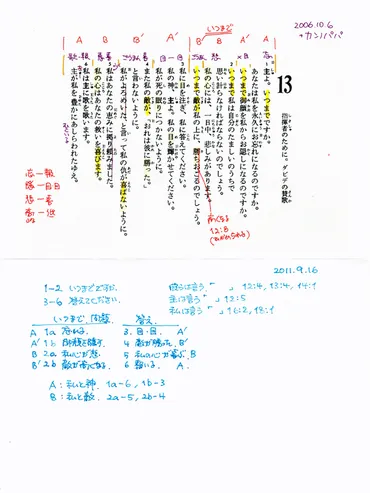 2006.10.6
+カンノパパ
いつまで
A B B' A' A' B' B A' A
13
指揮者のために。ダビデの賛歌
1 主よ。いつまでですか。
あなたは私を永久にお忘れになるのですか。
いつまで御顔を私からお隠しになるのですか。
2 いつまで私は自分のたましいのうちで
思い計らなければならないのでしょう。
私の心には、一日中、悲しみがあります。
いつまで敵が私の上に、勝ちおごるのでしょう。
3 私に目を注ぎ、私に答えてください。
私の神、主よ。私の目を輝かせてください。
私が死の眠りにつかないように。
4 また私の敵が、「おれは彼に勝った。」
と言わないように。
私がよろめいた、と言って私の仇が喜ばないように。
5 私はあなたの恵みに拠り頼みました。
私の心はあなたの救いを喜びます。
6 私は主に歌を歌います。
主が私を豊かにあしらわれたゆえ。
12:8
2011.9.16
1-2 いつまでですか。
3-6 答えてください。
12:4, 13:4, 14:1
12:5
いつまで、問題
答え
A 1a
3. 目・目. A'
A' 1b
4 敵が勝った. B'
B 2a 私心が悲
5 私の心が喜ぶ. B
B' 2b 敵が高くなる
6 A.
A : 私と神. 1a-6, 1b-3
B : 私と敵. 2a-5, 2b-4